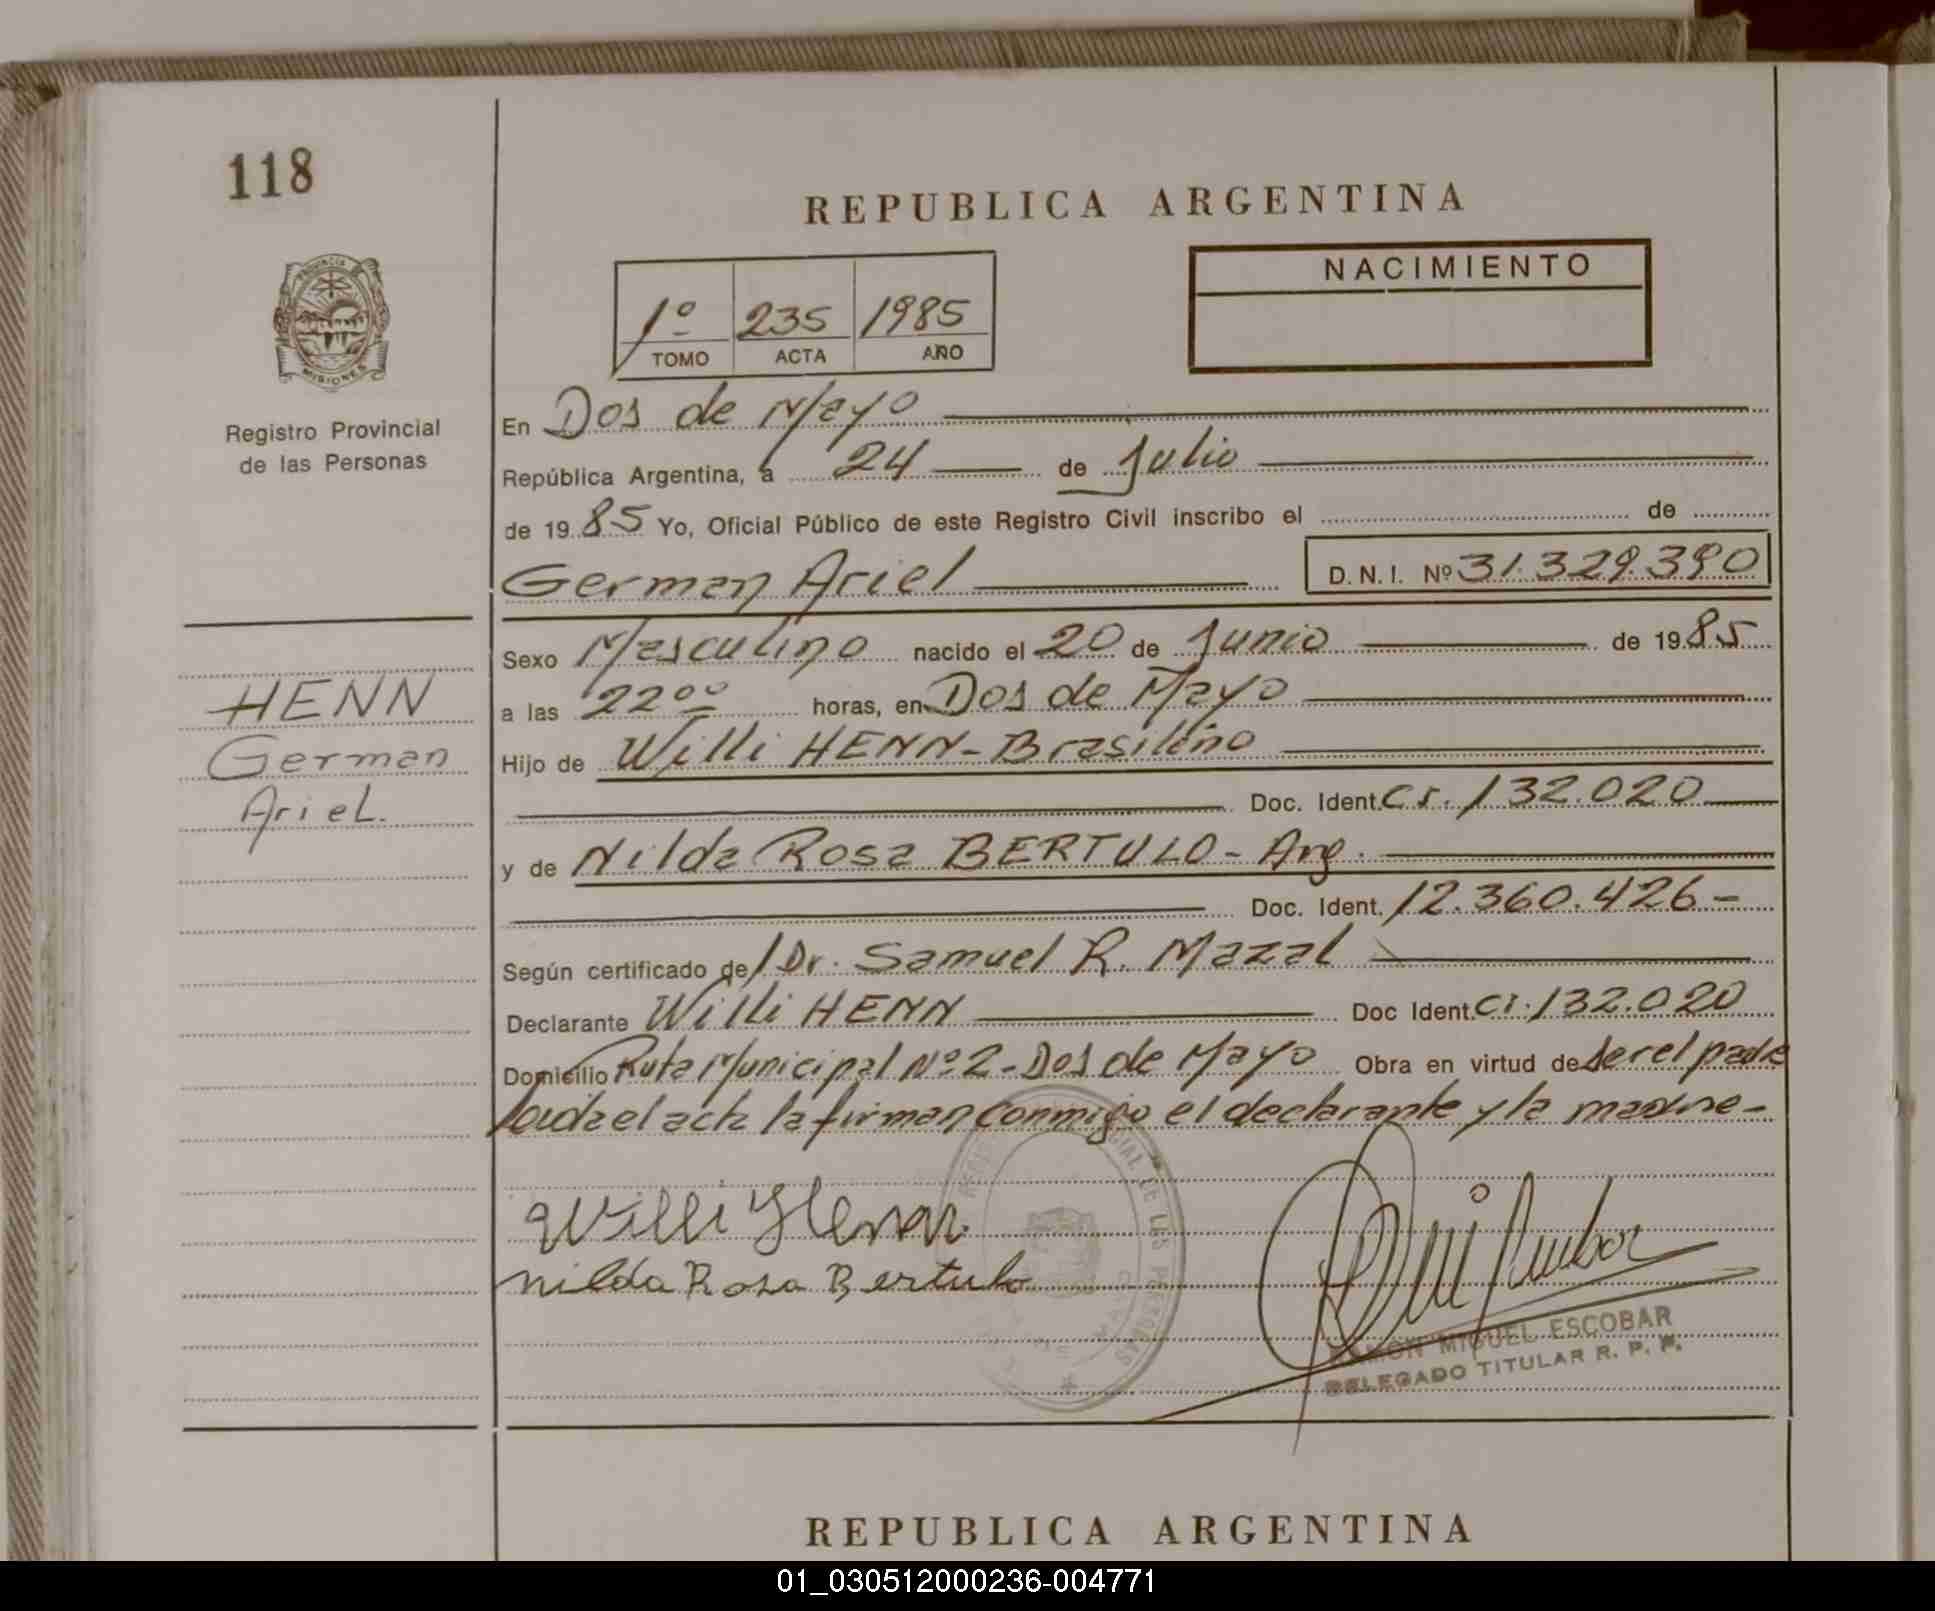 118
REPUBLICA ARGENTINA
PROVINCIA DE
MISIONES
Registro Provincial
de las Personas
1º 235 1985
TOMO ACTA AÑO
NACIMIENTO
En Dos de Mayo
República Argentina, a 24 de Julio
de 1985 Yo, Oficial Público de este Registro Civil inscribo el de
German Ariel D.N.I. Nº 31.329.390
Sexo Masculino nacido el 20 de Junio de 1985
a las 22°° horas, en Dos de Mayo
Hijo de Willi HENN - Brasileño
Doc. Ident. CI. 132.020
y de Nilda Rosa BERTULO - Arg.
Doc. Ident. 12.360.426 -
Según certificado de/ Dr. Samuel R. Mazal
Declarante Willi HENN Doc Ident. CI. 132.020
Domicilio Ruta Municipal Nº 2 - Dos de Mayo Obra en virtud de ser el padre
leida el acta la firman conmigo el declarante y la madre -
HENN
German
Ariel.
Willi Henn
nilda Rosa Bertulo
RAMON MIGUEL ESCOBAR
DELEGADO TITULAR R. P. P.
REPUBLICA ARGENTINA
01_030512000236-004771